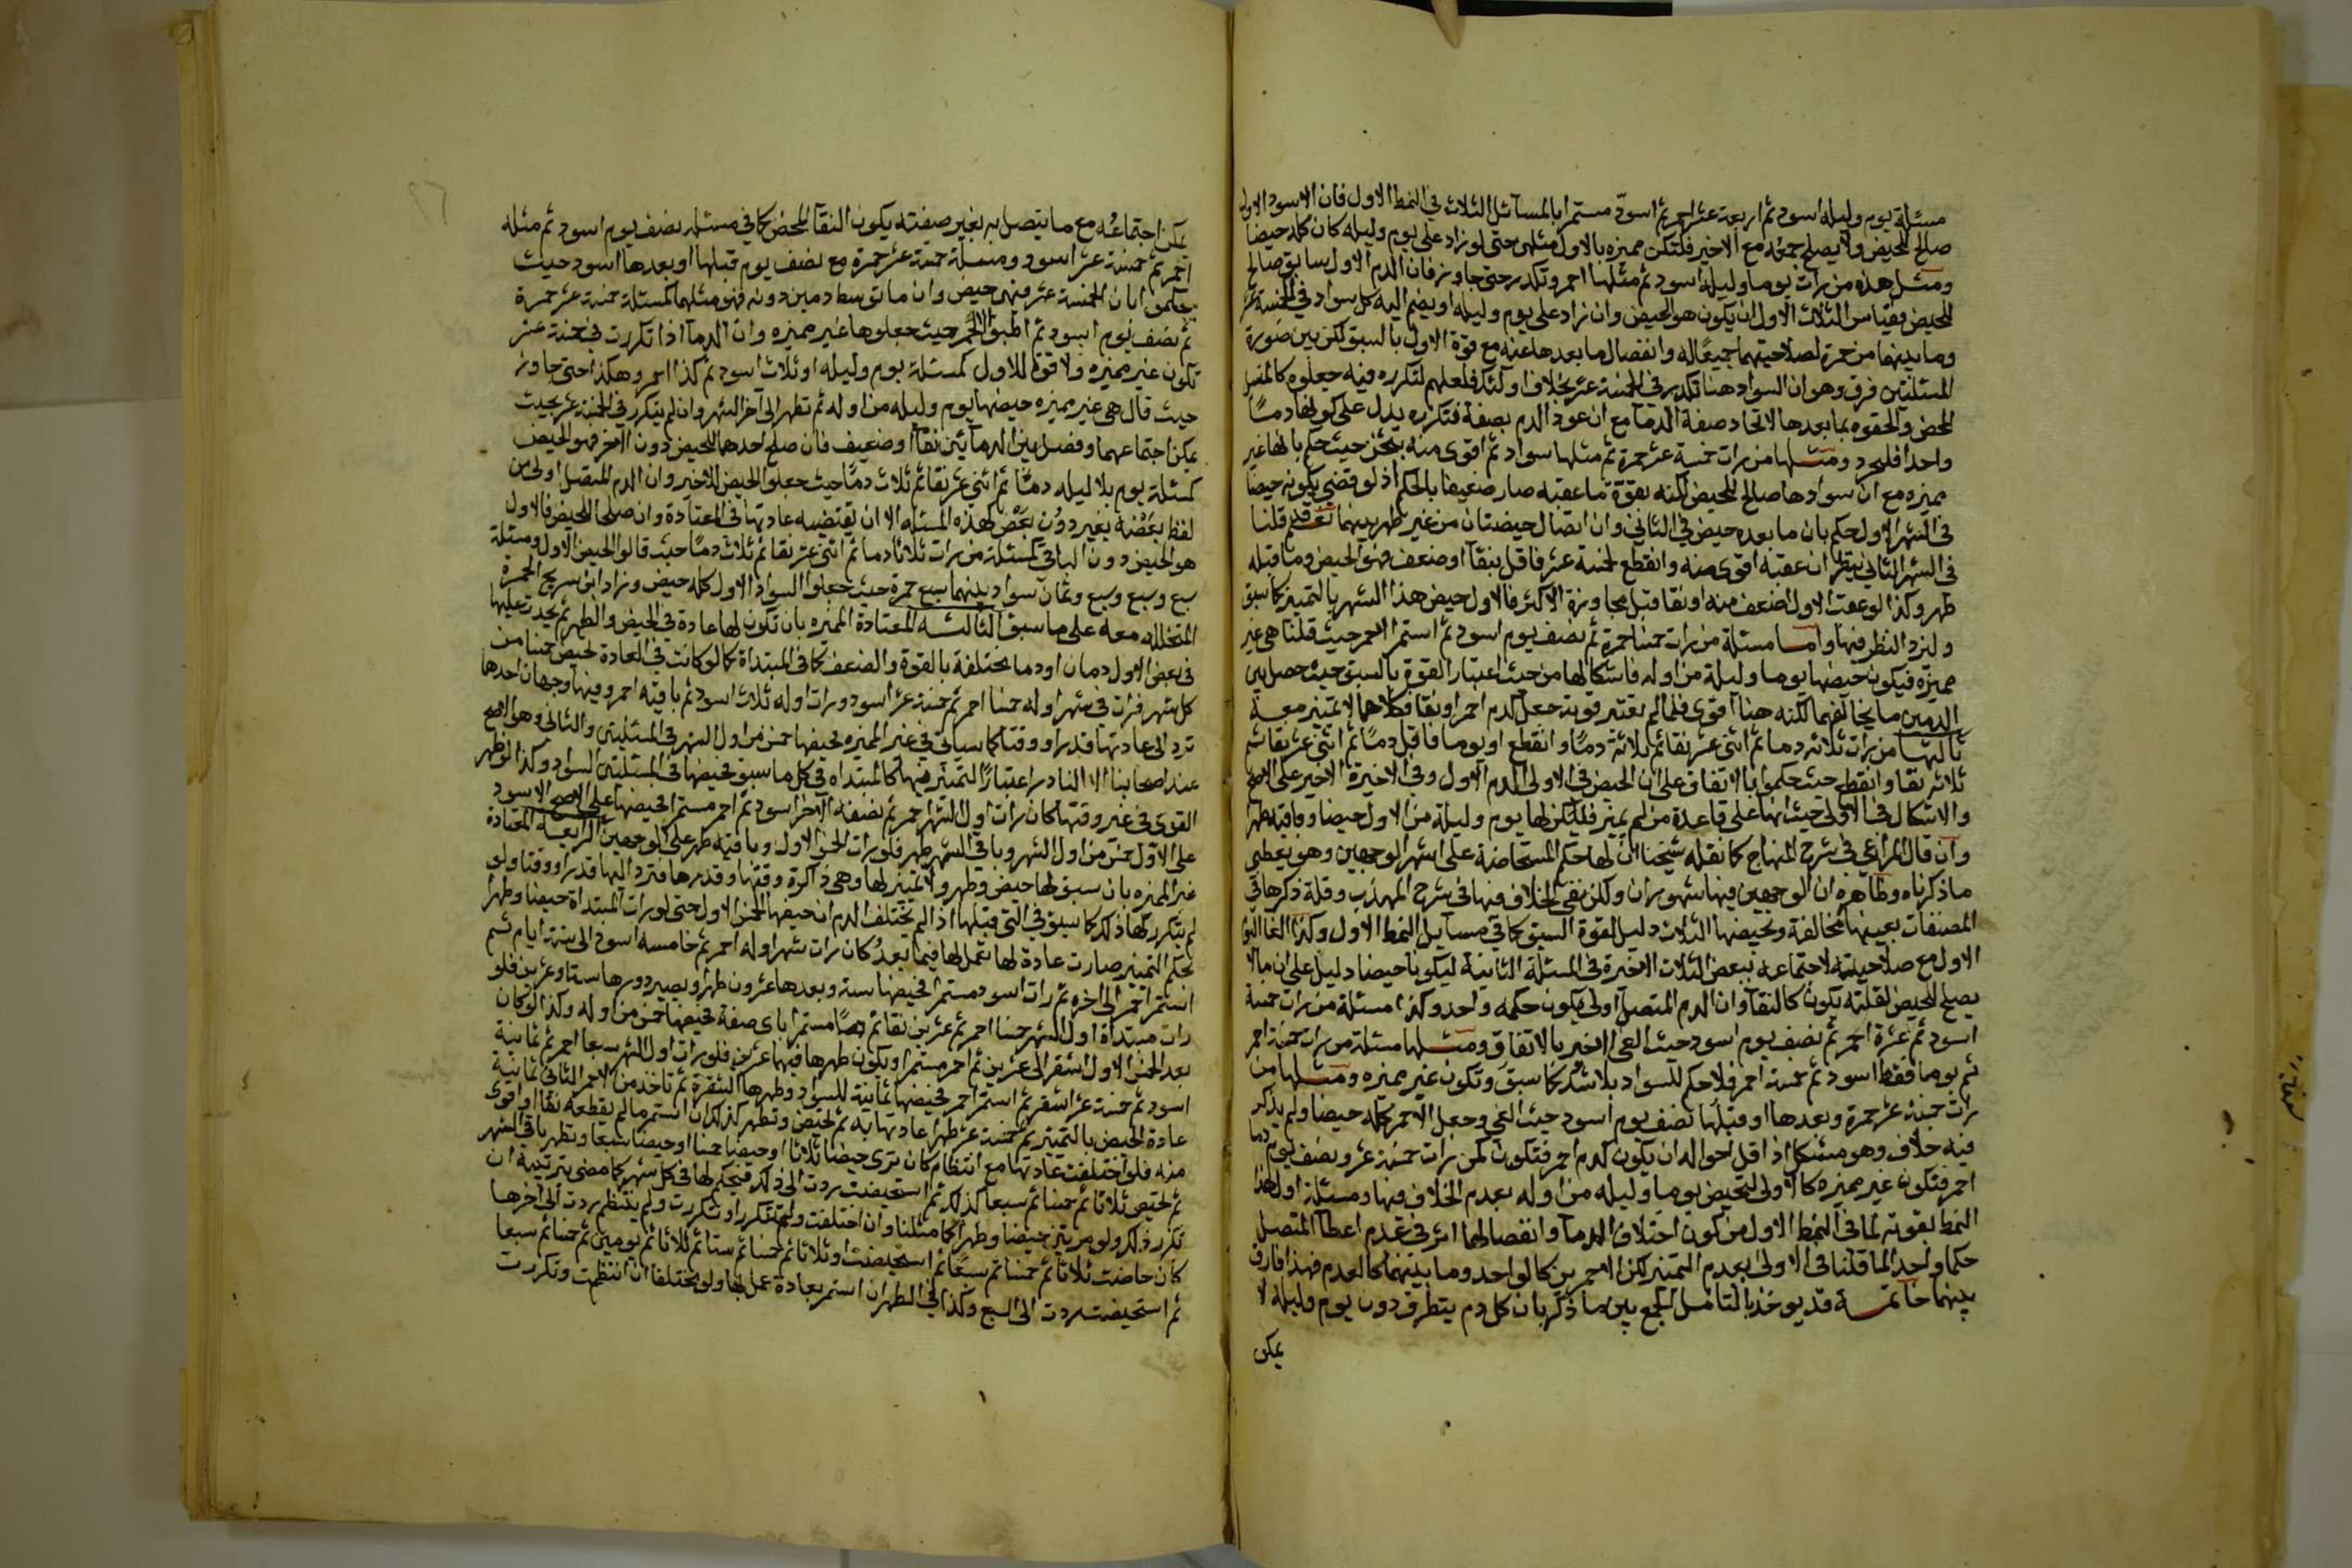 مسئلة يوم وليله اسود ثم اربعة عشر احمر ثم اسود مستمرا بالمسائل الثلاث في النمط الاول فان الاسود الاول
صالح للحيض ولا يصلح جمعه مع الاخير فلتكن مميزه بالاول مثلهن حتى لو زاد على يوم وليله كان كله حيضا
ومثل هذه من رات يوما وليله اسود ثم مثلها احمر وتكدر حتى جاوز فان الدم الاول سابق صالح
للحيض وقياس الثلاث الاول ان يكون هو الحيض وان زاد على يوم وليله او يضم اليه كل سواد في الخمسة عشر
وما بينهما من حمرة لصلاحيتهما جميعا له وانفصال ما بعدها عنه مع قوة الاول بالسبق لكن بين صورة
المسئلتين فرق وهو ان السواد هنا تكرر في الخمسة عشر بخلاف اولئك فلعلهم لتكرره فيه جعلوه كالمتصل
المحض والحقوه بما بعدها لاتحاد صفة الدما مع ان عود الدم بصفة فتكرره يدل على كونها دما
واحدا فليحرر ومثلها من رات خمسة عشر حمرة ثم مثلها سواد ثم اقوى منه بنحو حيث حكم بانها غير
مميزه مع ان سوادها صالح للحيض لكنه بقوة ما عقبه صار ضعيفا بالحكم اذ لو قضي بكونه حيضا
في الشهر الاول حكم بان ما بعده حيض في الثاني وان اتصال حيضتان من غير طهر بينهما تعقلهم قلنا
في الشهر الثاني ينظر ان عقبه اقوى منه وانقطع لخمسة عشر فاقل بنقا او ضعف فهو الحيض وما قبله
طهر وكذا لو عقب الاول اضعف منه او نقا قبل مجاوزة الاكثر فالاول حيض هذا الشهر بالتمييز كما سبق
وليزد النظر فيها واما مسئلة من رات خمسا حمرة ثم نصف يوم اسود ثم استمر الاحمر حيث قلنا هي غير
مميزه فيكون حيضها يوما وليلة من اوله فاشكالها من حيث اعتبار القوة بالسبق حيث حصل بين
الدمين ما يخالفهما لكنه هنا اقوى فلما لم يعتبر قوته جعل كدم احمر او نقا فكلاهما لا تمييز معه
ثالثها من رات ثلاثه دما ثم اثني عشر نقا ثم ثلاثة دما وانقطع او يوما فاقل دما ثم اثني عشر نقا ثم
ثلاثه نقا وانقطع حيث حكموا بالاتفاق على ان الحيض في الاولى الدم الاول وفي الاخيرة الاخير على الاصح
والاشكال في الاولى حيث انها على قاعدة من لم تميز فليكن لها يوم وليلة من الاول حيضا وباقيه طهرا
وان قال المراغي في شرح المنهاج كما نقله شيخنا ان لها حكم المستحاضة على اشهر الوجهين وهو يعطي
ما ذكرناه وظاهره ان الوجهين فيها مشهوران ولكن نفي الخلاف فيها في شرح المهذب وقلة ذكرها في
المصنفات بعينها مخالفة وتحيضها الثلاث دليل لقوة السبق كما في مسائل النمط الاول وكذا الغا الدم
الاول مع صلاحيته لاجتماعه ببعض الثلاث الاخيرة في المسئلة الثانية ليكونا حيضا دليل على ان ما لا
يصلح للحيض لقلته يكون كالنقا وان الدم المتصل اولى بكون حكمه واحد وكذا مسئلة من رات خمسة
اسود ثم عشرة احمر ثم نصف يوم اسود حيث الغي الاخير بالاتفاق ومثلها مسئلة من رات خمسة احمر
ثم يوما فقط اسود ثم خمسة احمر فلا حكم للسواد بلا شك كما سبق وتكون غير مميزه ومثلها من
رات خمسة عشر حمرة وبعدها او قبلها نصف يوم اسود حيث الغي وجعل الاحمر كله حيضا ولم يذكر
فيه خلاف وهو مشكل اذ اقل احواله ان يكون كدم احمر فتكون كمن رات خمسة عشر ونصف يوم دما
احمر فتكون غير مميزه كالاولى لتحيض يوما وليله من اوله بعدم الخلاف فيها ومسئلة اول هذا
النمط بقوته لما في النمط الاول من كون اختلاف الدما وانفصالها اثر في عدم اعطا المتصل
حكما واحدا لما قلنا في الاولى بعدم التمييز لكن الاحمرين كالواحد وما بينهما كالعدم فهذا فارق
بينهما خاتمة قد يوخذ بالتامل الجمع بين ما ذكر بان كل دم يتطرف دون يوم وليلة لا
يمكن
يمكن اجتماعه مع ما يتصل به بغير صفته يكون النقا المحض كما في مسئلة نصف يوم اسود ثم مثله
احمر ثم خمسة عشر اسود ومسئلة خمسة عشر حمرة مع نصف يوم قبلها او بعدها اسود حيث
حكموا بان الخمسة عشر فيهن حيض وان ما توسط دمين دونه فهو مثلهما كمسئلة خمسة عشر حمرة
ثم نصف يوم اسود ثم اطبق الاحمر حيث جعلوها غير مميزه وان الدما اذا تكررت في خمسة عشر
تكون غير مميزه ولا قوة للاول كمسئلة يوم وليله او ثلاث اسود ثم كذا احمر وهكذا حتى جاوز
حيث قال هي غير مميزه حيضها يوم وليله من اوله ثم تطهر الى آخر الشهر وان لم يتكرر في الخمسة عشر بحيث
يمكن اجتماعهما وفصل بين الدمائين نقا او ضعيف فان صلح احدهما للحيض دون الاخر فهو الحيض
كمسئلة يوم بلا ليله دما ثم اثني عشر نقا ثم ثلاث دما حيث جعلوا الحيض الاخير وان الدم المتصل اولى من
لفظ بعضه بغير دون بعض لهذه المسئله الا ان يقتضيه عادتها في المعتادة وان صلحا للحيض فالاول
هو الحيض دون الباقي كمسئلة من رات ثلاثا دما ثم اثني عشر نقا ثم ثلاث دما حيث قالوا الحيض الاول ومسئلة
سبع وسبع وسبع وثمان سواد بينهما سبع حمرة حيث جعلوا السواد الاول كله حيض وزاد ابن سريج الحمرة
المتخللة معه على ما سبق الثالثة المعتادة المميزه بان تكون لها عادة في الحيض والطهر ثم يحدث عليها
في بعض الاول دمان او دما مختلفة بالقوة والضعف كما في المبتداة كما لو كانت في العادة تحيض خمسا من
كل شهر فرات في شهر اوله خمسا احمر ثم خمسة عشر اسود ورات اوله ثلاث اسود ثم باقيه احمر وفيها وجهان احدها
ترد الى عادتها قدرا ووقتا كما سياتي في غير المميزه فحيضها خمس من اول الشهر في المسئلتين والثاني وهو الاصح
عند اصحابنا الا النادر اعتبارا لتمييز فيها كالمبتداه في كل ما سبق فحيضها في المسئلتين السواد وكذا لو ظهر
القوى في غير وقتها كان رات اول الشهر احمر ثم نصفه الاخر اسود ثم احمر مستمر الحيضها على الاصح الاسود
على الاول خمس من اول الشهر وباقي الشهر طهر فلو رات الخمس الاول وما فيه طهر على الوجهين الرابعه المعتادة
غير المميزه بان سبق لها حيض وطهر ولا تمييز لها وهي ذاكرة وقتها وقدرها فترد اليها قدرا ووقتا ولو
لم يتكرر لها ذلك كما سبق في التي قبلها اذا لم يختلف الدم ان حيضها الخمس الاول حتى لو رات المبتداة حيضا وطهرا
بحكم التمييز صارت عادة لها تعمل لها فيما بعد كان رات شهرا اوله احمر ثم خامسه اسود الى ستة ايام ثم
استمر احمر الى اخره ثم رات اسود مستمرا فحيضها ستة وبعدها عشرون طهرا ويصير دورها ستا وعشرين فلو
رات مبتداة اول الشهر خمسا احمر ثم عشرين نقا ثم دما مستمرا باي صفة فحيضها خمس من اوله وكذا لو كان
بعد الخمس الاول اشقر الى عشرين ثم احمر مستمرا ويكون طهرها فيهما عشرين فلو رات اول الشهر سبعا احمر ثم ثمانية
اسود ثم خمسة عشر اشقر ثم استمر احمر فحيضها ثمانية للسواد وطهرها الشقرة ثم تاخذ من الاحمر الثاني ثمانية
عادة الحيض بالتمييز ثم خمسة عشر طهرا عادتها به ثم تحيض وتطهر كذلك ان استمر ما لم يقطعه نقا او اقوى
منه فلو اختلفت عادتها مع انتظام كان ترى حيضا ثلاثا او حيضا خمسا او حيضا سبعا وتطهر باقي الشهر
ثم تحيض ثلاثا ثم خمسا ثم سبعا كذلك ثم استحيضت ردت الى ذلك فتحكم لها في كل شهر كما مضى بترتيبه ان
تكرر ذلك ولو مرتين حيضا وطهرا كما مثلنا وان اختلفت ولم تتكرر او تكررت ولم ينتظم ردت الى اخرها
كان حاضت ثلاثا ثم خمسا ثم سبعا ثم استحيضت او ثلاثا ثم خمسا ثم ستا ثم ثلاثا ثم يومين ثم خمسا ثم سبعا
ثم استحيضت ردت الى السبع وكذا في الطهر ان استمر بعادة عمل بها ولو مختلفا ان انتظمت وتكررت